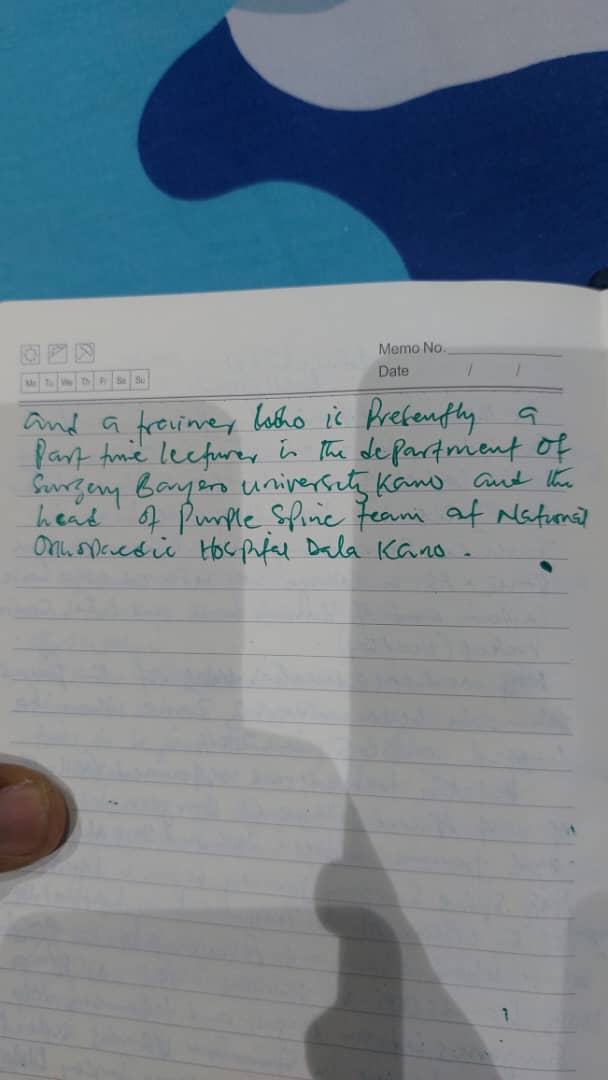 Memo No.
Date / /
Mo Tu We Th Fr Sa Su
and a trainer who is Presently a
Part time lecturer in the department of
Surgery Bayero university Kano and the
head of Purple Spine Team at National
Orthopaedic Hospital Dala Kano.